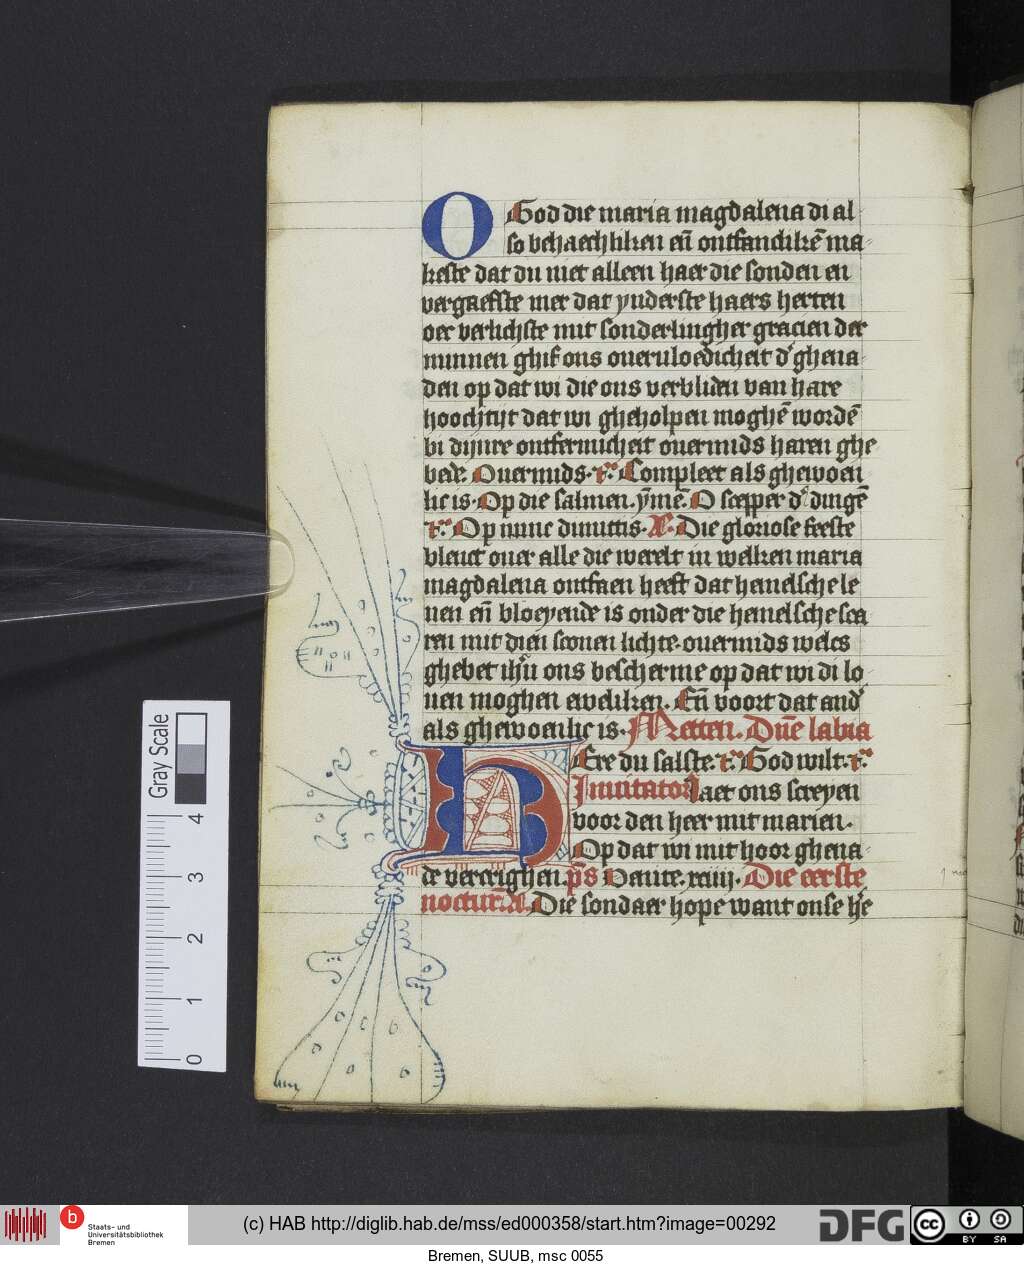 O God die maria magdalena di al
so behaechliken eñ ontfancikē ma-
keste dat du niet alleen haer die sonden en
vergaefste mer dat ynderste haers herten
oec verlichste mit sonderlingher gracien der
minnen ghif ons oueruloedicheit d' ghena-
den op dat wi die ons verbliden van hare
hoochtijt dat wi gheholpen moghē wordē
bi dijnre ontfermicheit ouermids haren ghe
bede. Ouermids. Compleet als ghewoen
lic is. Op die salmen. ymē. O scepper d' dingē
Op nunc dimittis. Die gloriose feeste
bleuct ouer alle die werelt in welken maria
magdalena ontfaen heeft dat hemelsche le
uen eñ bloeyende is onder die hemelsche sca
ren mit dien sconen lichte. ouermids welcs
ghebet ihū ons bescherme op dat wi di lo-
uen moghen eweliken. Eñ voort dat and'
als ghewoenlic is. Metten. Dñe labia
HEre du salste. God wilt.
Inuitatoꝛ Laet ons screyen
voor den heer mit marien.
Op dat wi mit hoor ghena-
de vercrighen. ps Uenite. xciiij. Die eerste
noctur. Die sondaer hope want onse hē
Gray Scale
4
3
2
1
0
b
Staats- und
Universitätsbibliothek
Bremen
(c) HAB http://diglib.hab.de/mss/ed000358/start.htm?image=00292
DFG
cc BY SA
Bremen, SUUB, msc 0055